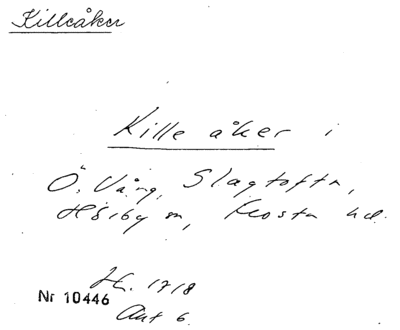 Killeåker
Kille åker i
Ö. Vång, Slagtofta,
Hörby sn, Frosta hd.
Hh. 1718
Nr 10446
Akt 6